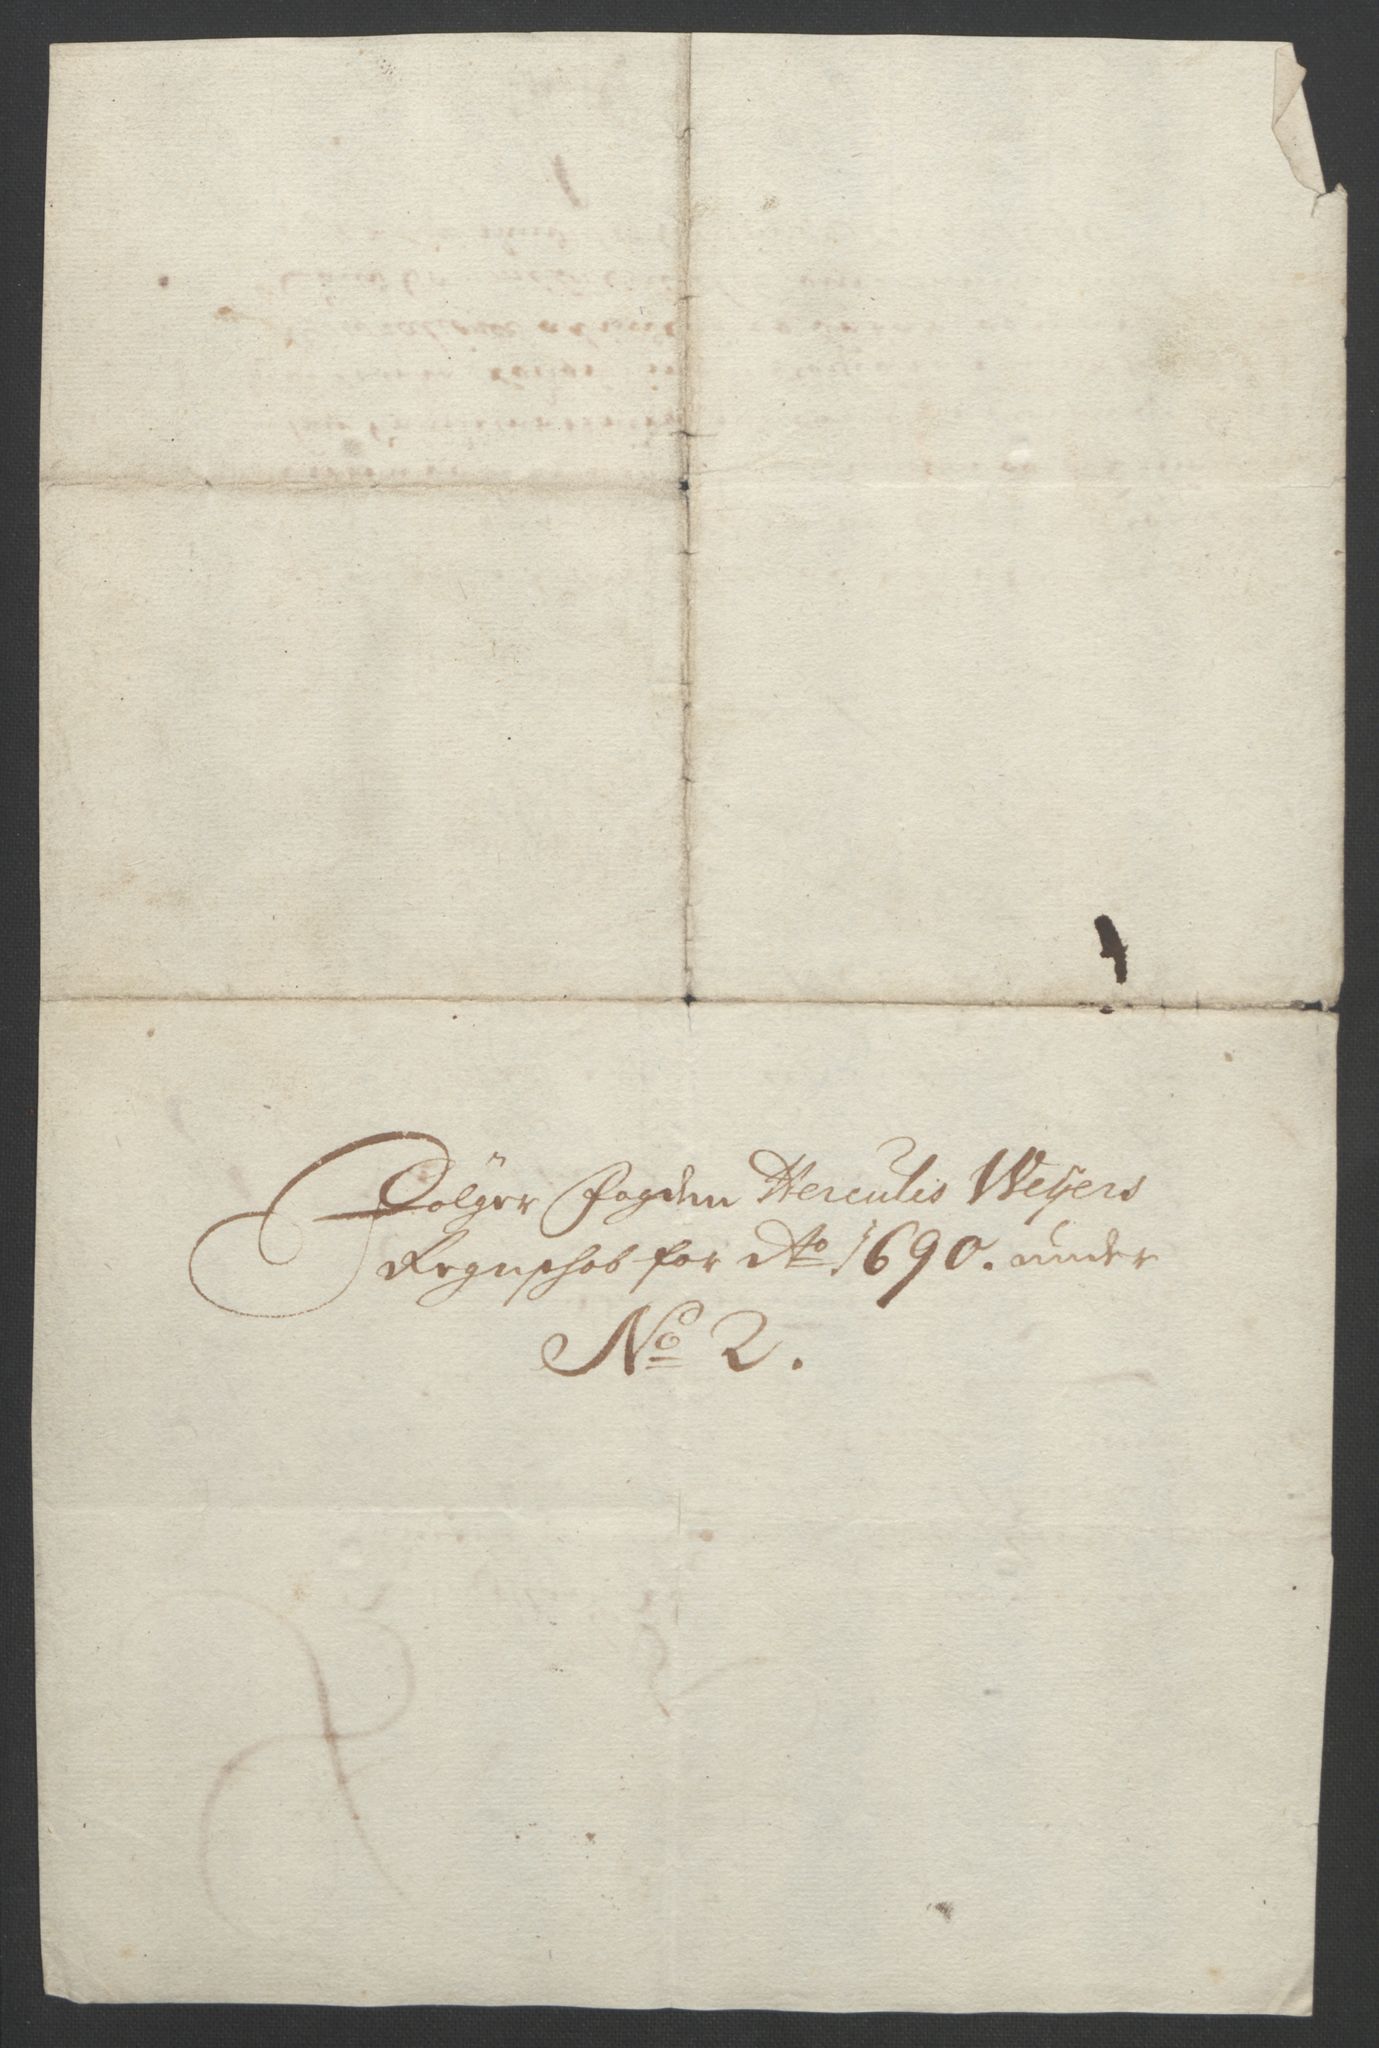 Følger fogden Herculis Weÿers
Regnschab for Ao 1690. under
No 2.